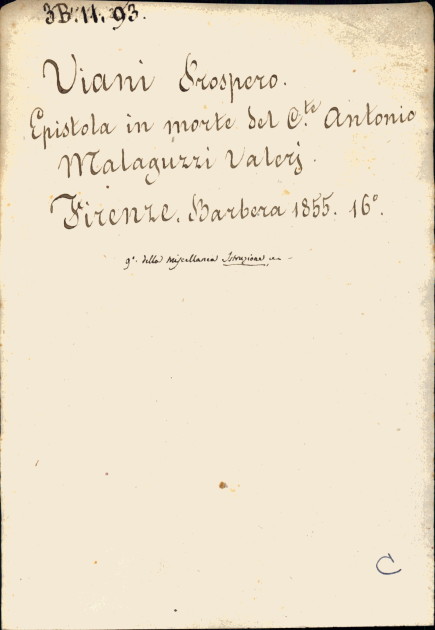 3B.11.93.
Viani Prospero.
Epistola in morte del C.te Antonio
Malaguzzi Valerj.
Firenze. Barbera 1855. 16°.
9ª. della Miscellanea Istruzione
C